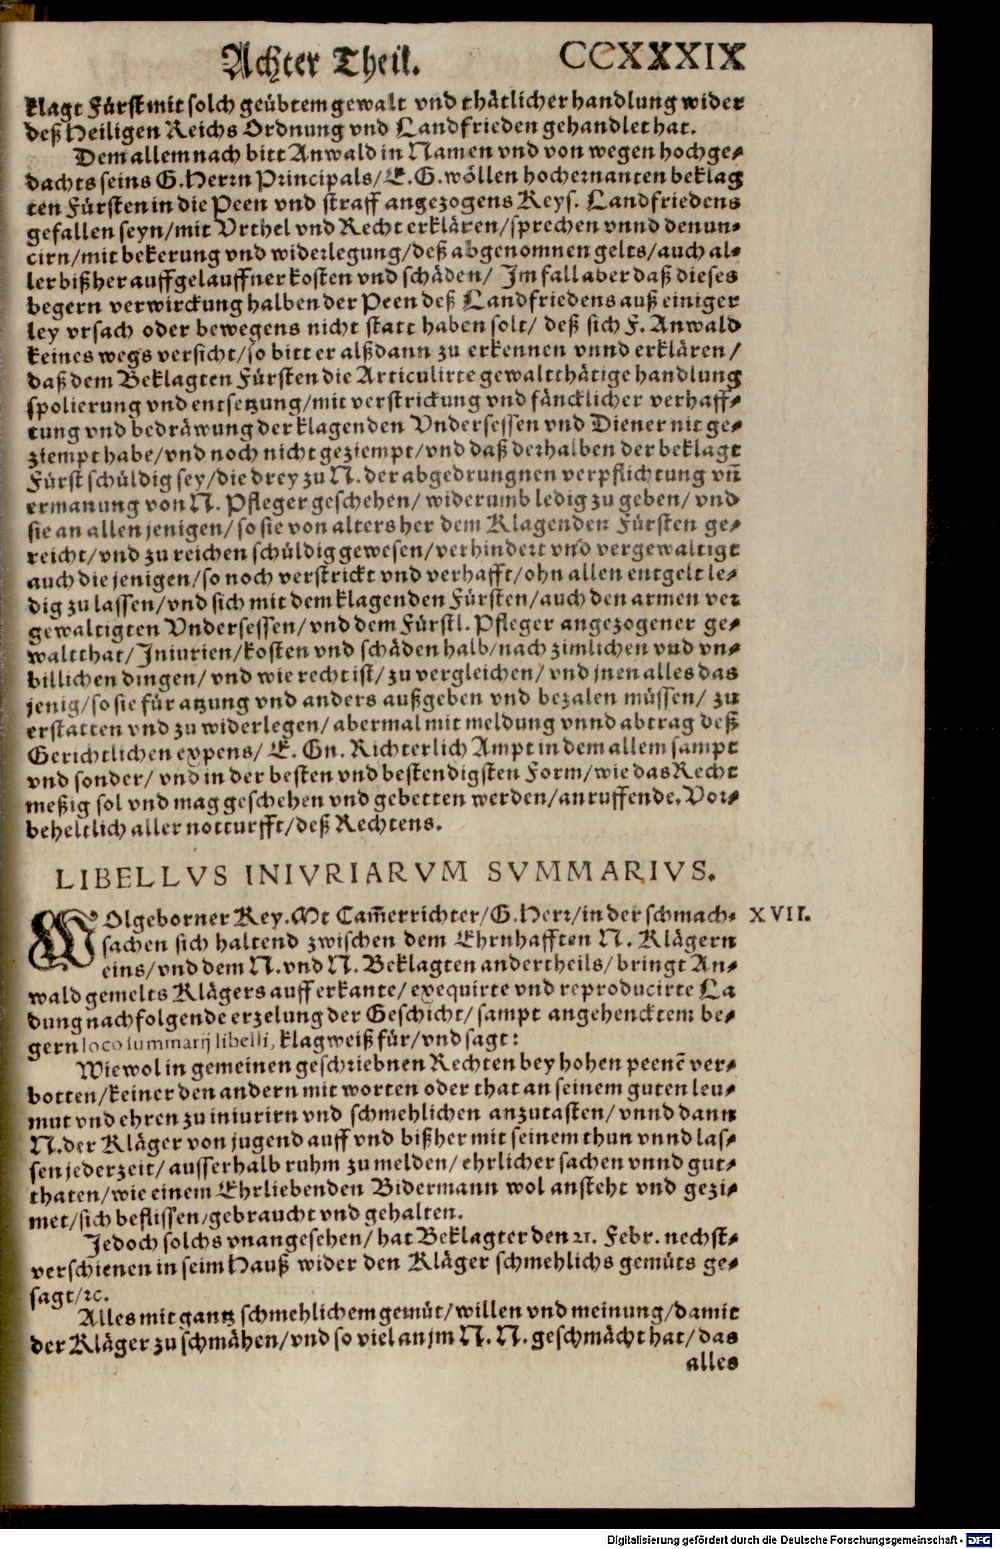 Achter Theil. CCXXXIX
klagt Fürst mit solch geübtem gewalt vnd thätlicher handlung wider
deß Heiligen Reichs Ordnung vnd Landfrieden gehandlet hat.
Dem allem nach bitt Anwald in Namen vnd von wegen hochge-
dachts seins G. Herrn Principals/ E. G. wöllen hochernanten beklag
ten Fürsten in die Peen vnd straff angezogens Keys. Landfriedens
gefallen seyn/ mit Vrthel vnd Recht erklären/ sprechen vnnd denun-
cirn/ mit bekerung vnd widerlegung/ deß abgenomnen gelts/ auch al-
ler bißher auffgelauffner kosten vnd schäden/ Im fall aber daß dieses
begern verwirckung halben der Peen deß Landfriedens auß einiger
ley vrsach oder bewegens nicht statt haben solt/ deß sich F. Anwald
keines wegs versicht/ so bitt er alßdann zu erkennen vnnd erklären/
daß dem Beklagten Fürsten die Articulirte gewaltthätige handlung
spolierung vnd entsetzung/ mit verstrickung vnd fäncklicher verhaff-
tung vnd bedräwung der klagenden Vndersessen vnd Diener nit ge-
ziempt habe/ vnd noch nicht geziempt/ vnd daß derhalben der beklagt
Fürst schüldig sey/ die drey zu N. der abgedrungnen verpflichtung vñ
ermanung von N. Pfleger geschehen/ widerumb ledig zu geben/ vnd
sie an allen jenigen/ so sie von alters her dem Klagenden Fürsten ge-
reicht/ vnd zu reichen schüldig gewesen/ verhindert vnd vergewaltigt
auch die jenigen/ so noch verstrickt vnd verhafft/ ohn allen entgelt le-
dig zu lassen/ vnd sich mit dem klagenden Fürsten/ auch den armen ver
gewaltigten Vndersessen/ vnd dem Fürstl. Pfleger angezogener ge-
waltthat/ Iniurien/ kosten vnd schäden halb/ nach zimlichen vnd vn-
billichen dingen/ vnd wie recht ist/ zu vergleichen/ vnd jnen alles das
jenig/ so sie für atzung vnd anders außgeben vnd bezalen müssen/ zu
erstatten vnd zu widerlegen/ abermal mit meldung vnnd abtrag deß
Gerichtlichen expens/ E. Gn. Richterlich Ampt in dem allem sampt
vnd sonder/ vnd in der besten vnd bestendigsten Form/ wie das Recht
meßig sol vnd mag geschehen vnd gebetten werden/ anruffende. Vor-
beheltlich aller notturfft/ deß Rechtens.
LIBELLVS INIVRIARVM SVMMARIVS.
WOlgeborner Key. Mt Cam̃errichter/ G. Herr/ in der schmach- XVII.
sachen sich haltend zwischen dem Ehrnhafften N. Klägern
eins/ vnd dem N. vnd N. Beklagten andertheils/ bringt An-
wald gemelts Klägers auff erkante/ exequirte vnd reproducirte La
dung nachfolgende erzelung der Geschicht/ sampt angehencktem be-
gern loco summarij libelli, klagweiß für/ vnd sagt:
Wiewol in gemeinen geschriebnen Rechten bey hohen peenẽ ver-
botten/ keiner den andern mit worten oder that an seinem guten leu-
mut vnd ehren zu iniurirn vnd schmehlichen anzutasten/ vnnd dann
N. der Kläger von jugend auff vnd bißher mit seinem thun vnnd las-
sen jederzeit/ ausserhalb ruhm zu melden/ ehrlicher sachen vnnd gut-
thaten/ wie einem Ehrliebenden Bidermann wol ansteht vnd gezi-
met/ sich beflissen/ gebraucht vnd gehalten.
Jedoch solchs vnangesehen/ hat Beklagter den 21. Febr. nechst-
verschienen in seim Hauß wider den Kläger schmehlichs gemüts ge-
sagt/ ꝛc.
Alles mit gantz schmehlichem gemüt/ willen vnd meinung/ damit
der Kläger zu schmähen/ vnd so viel an jm N. N. geschmächt hat/ das
alles
Digitalisierung gefördert durch die Deutsche Forschungsgemeinschaft - DFG